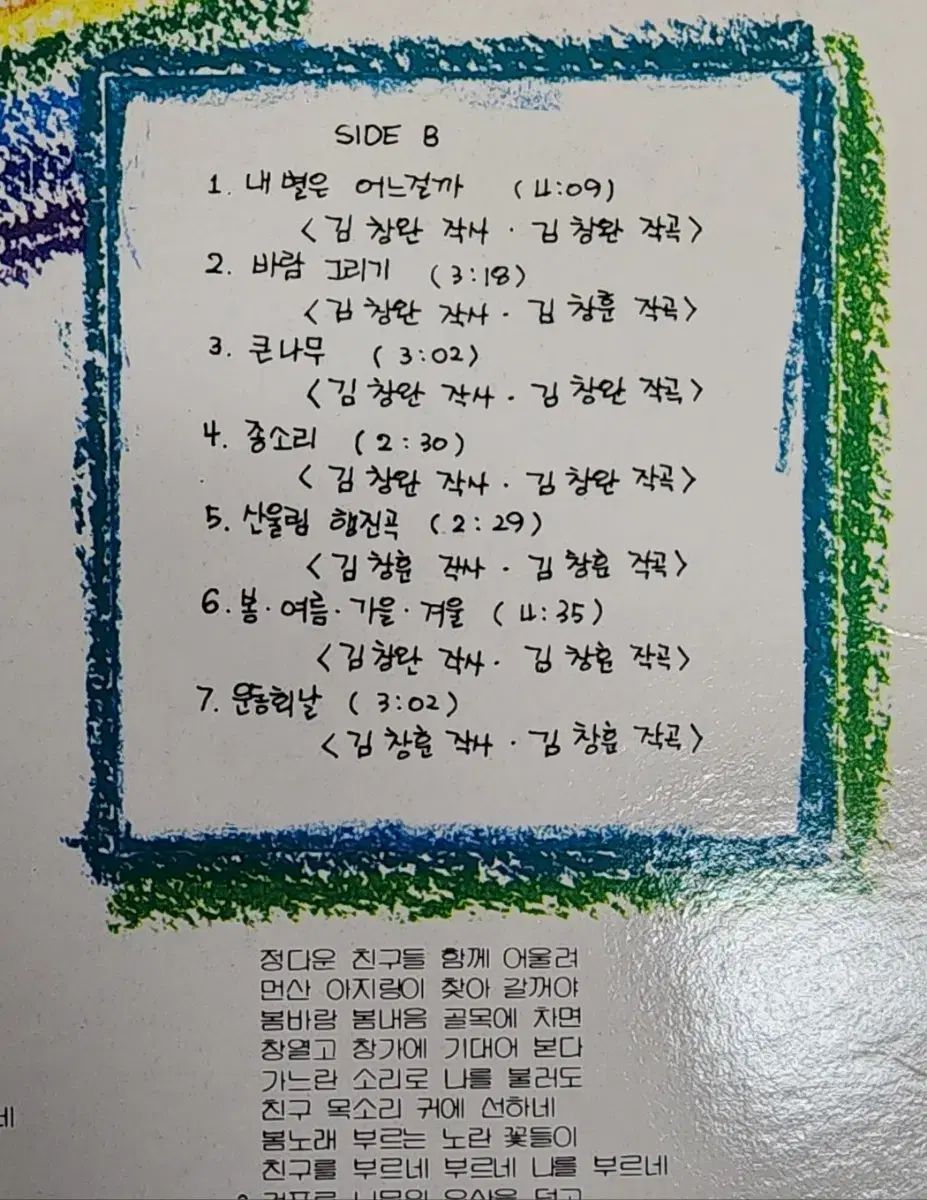 SIDE B
1. 내 별은 어느걸까 (4:09)
<김 창완 작사 · 김 창완 작곡>
2. 바람 그리기 (3:18)
<김 창완 작사 · 김 창훈 작곡>
3. 큰나무 (3:02)
<김 창완 작사 · 김 창완 작곡>
4. 종소리 (2:30)
<김 창완 작사 · 김 창완 작곡>
5. 산울림 행진곡 (2:29)
<김 창훈 작사 · 김 창훈 작곡>
6. 봄 · 여름 · 가을 · 겨울 (4:35)
<김 창완 작사 · 김 창훈 작곡>
7. 운동회날 (3:02)
<김 창훈 작사 · 김 창훈 작곡>
정다운 친구들 함께 어울려
먼산 아지랑이 찾아 갈꺼야
봄바람 봄내음 골목에 차면
창열고 창가에 기대어 본다
가느란 소리로 나를 불러도
친구 목소리 귀에 선하네
봄노래 부르는 노란 꽃들이
친구를 부르네 부르네 나를 부르네
네